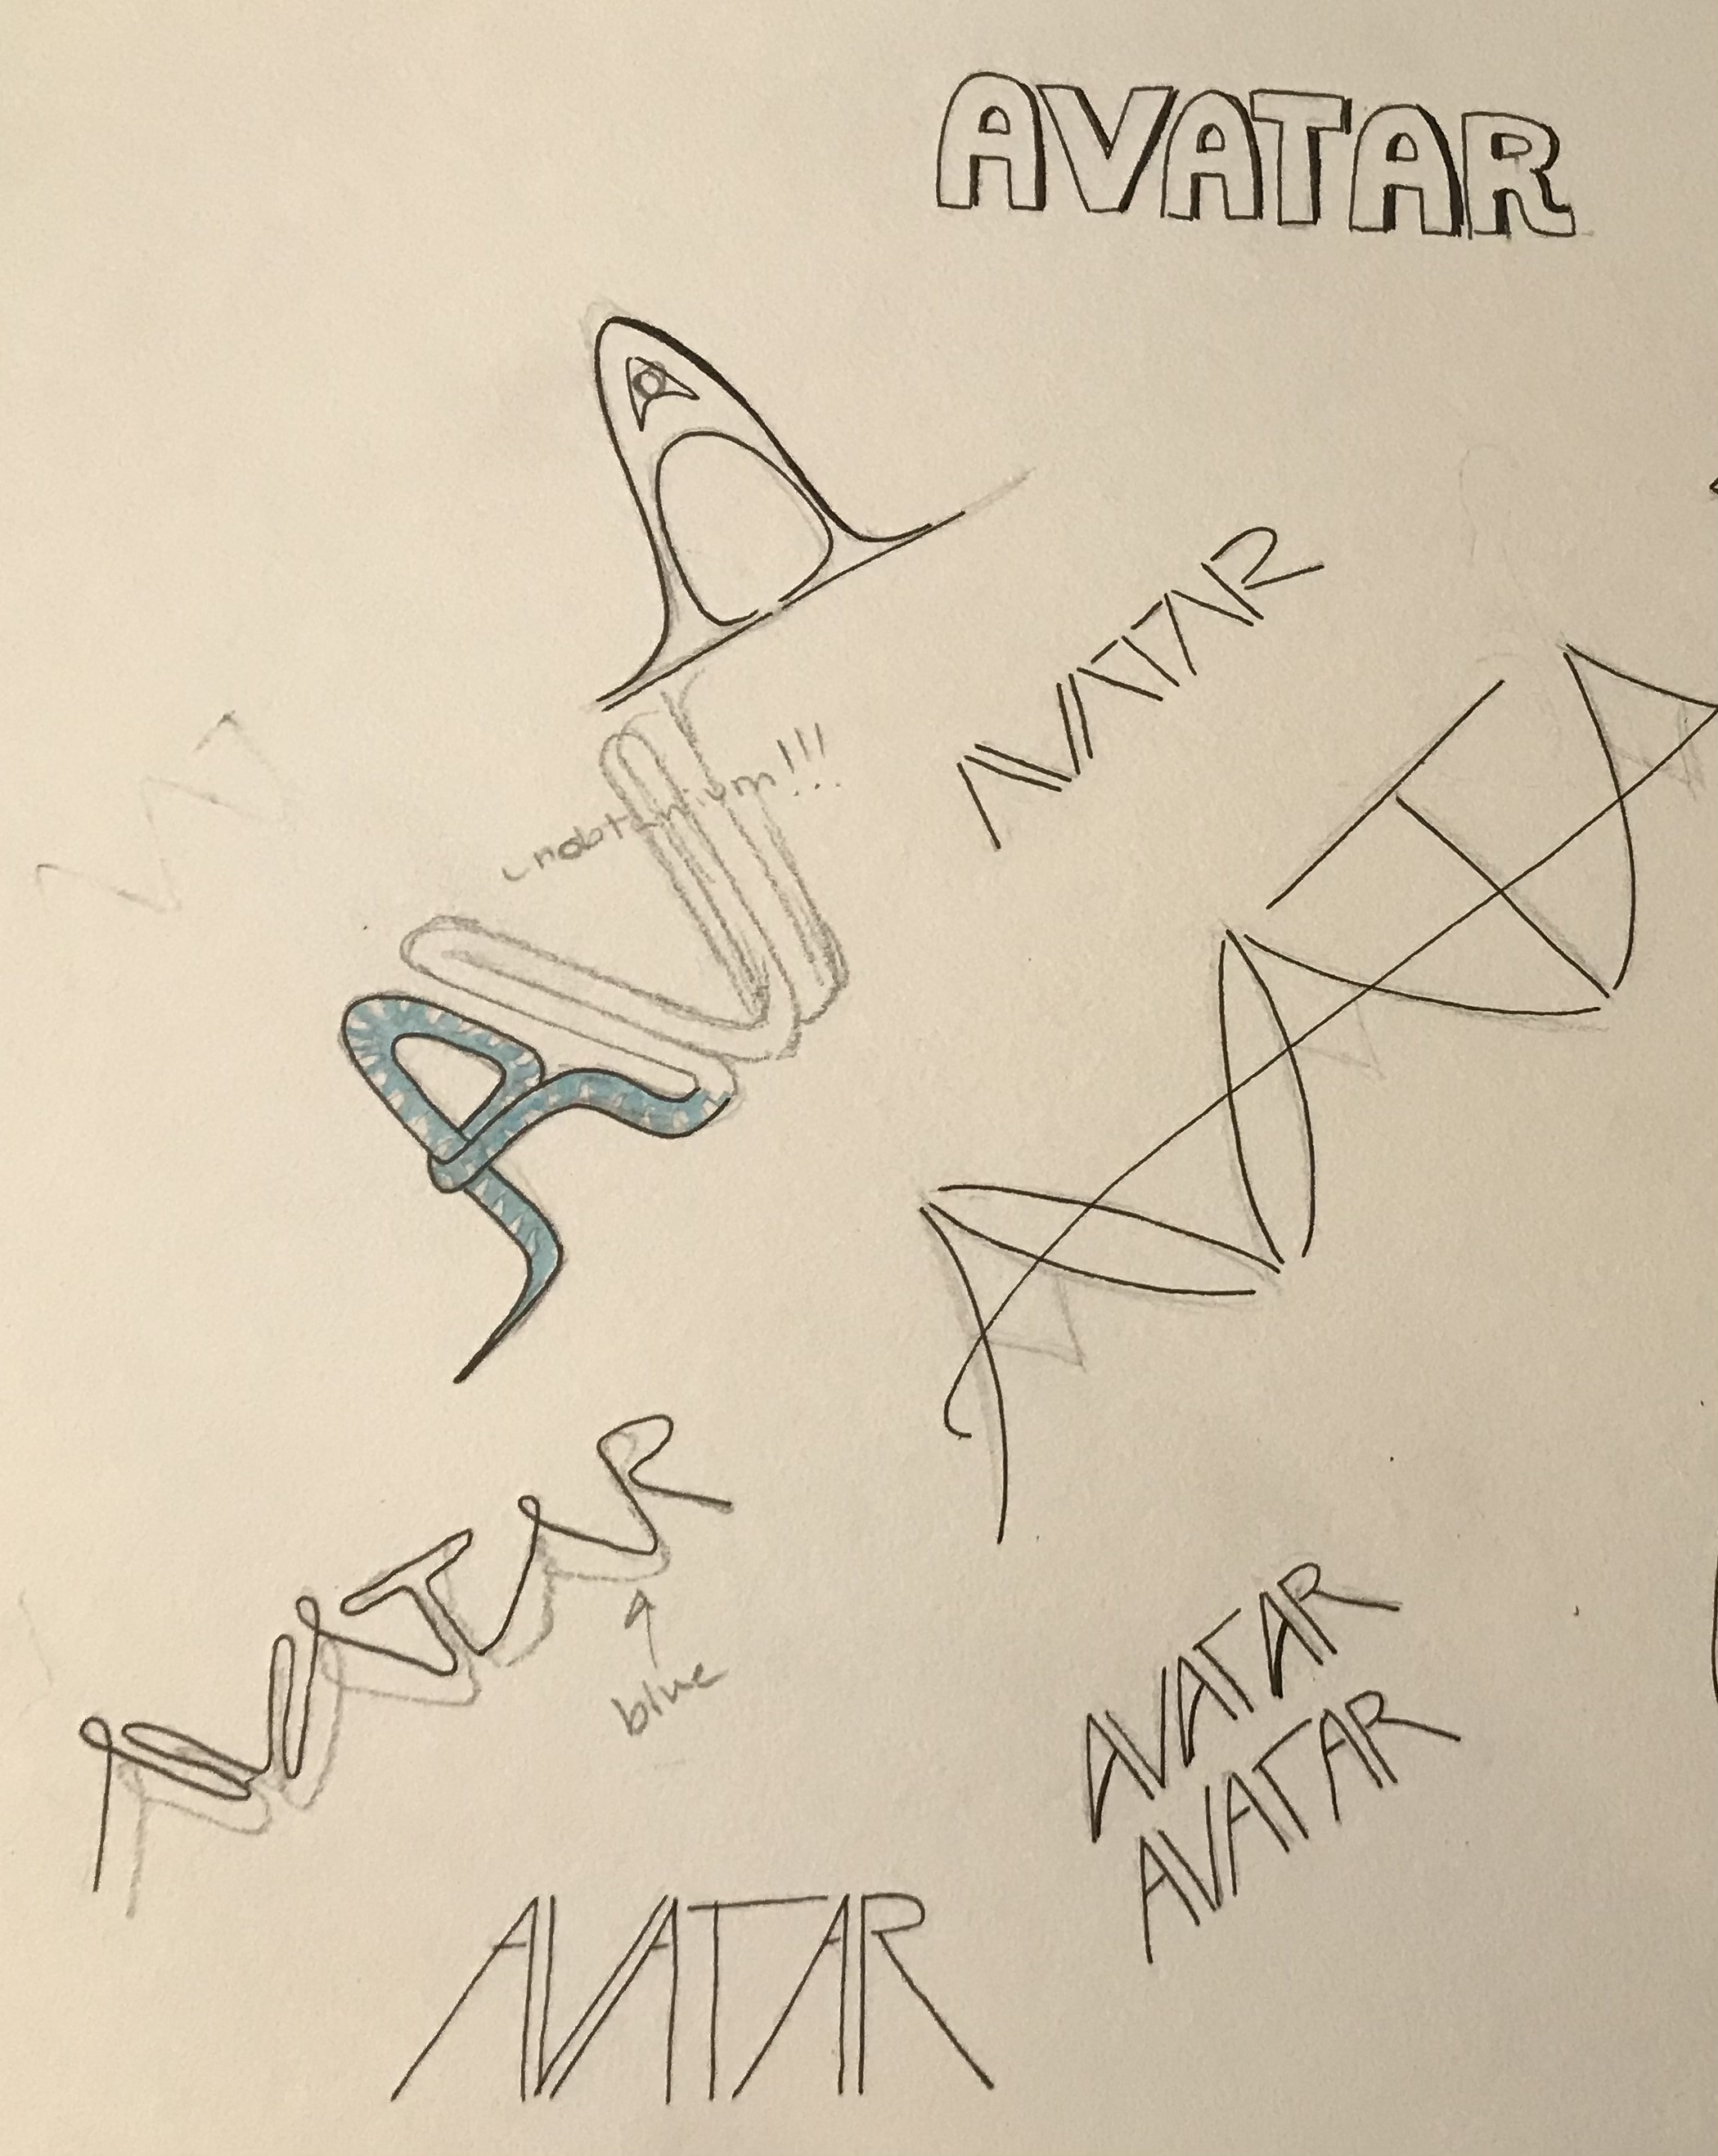 AVATAR
AVATAR
unobtanium!!!
AVAT
AVATA
AVATAR
blue
AVATAR
AVATAR
AVATAR